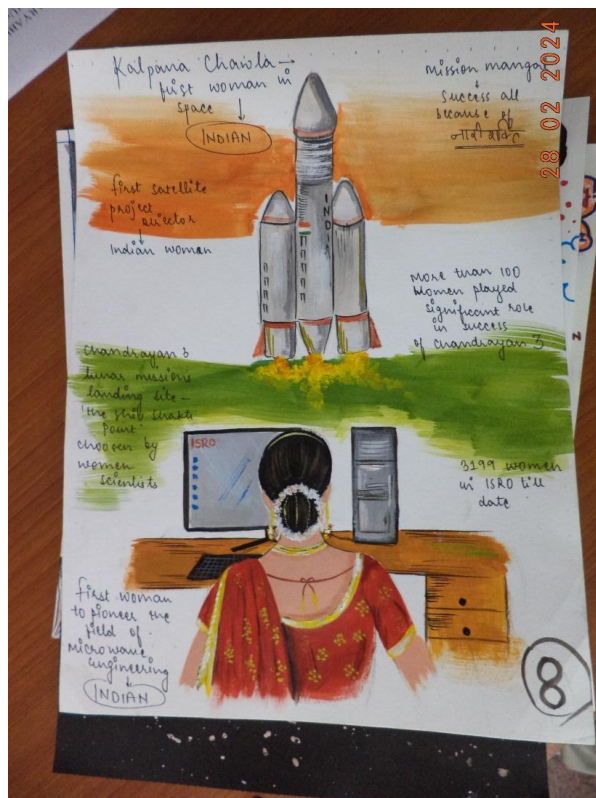 Kalpana Chawla →
first woman in
space
INDIAN
mission mangal
Success all
because of
नारी शक्ति
28 02 2024
first satellite
project
director
Indian woman
INDIA
More than 100
women played
significant role
in success
of chandrayan 3
chandrayan 3
lunar missions
landing site -
'the shiv shakti
point'
choosen by
women
scientists
ISRO
3199 women
in ISRO till
date
first woman
to pioneer the
field of
microwave
engineering
INDIAN
8